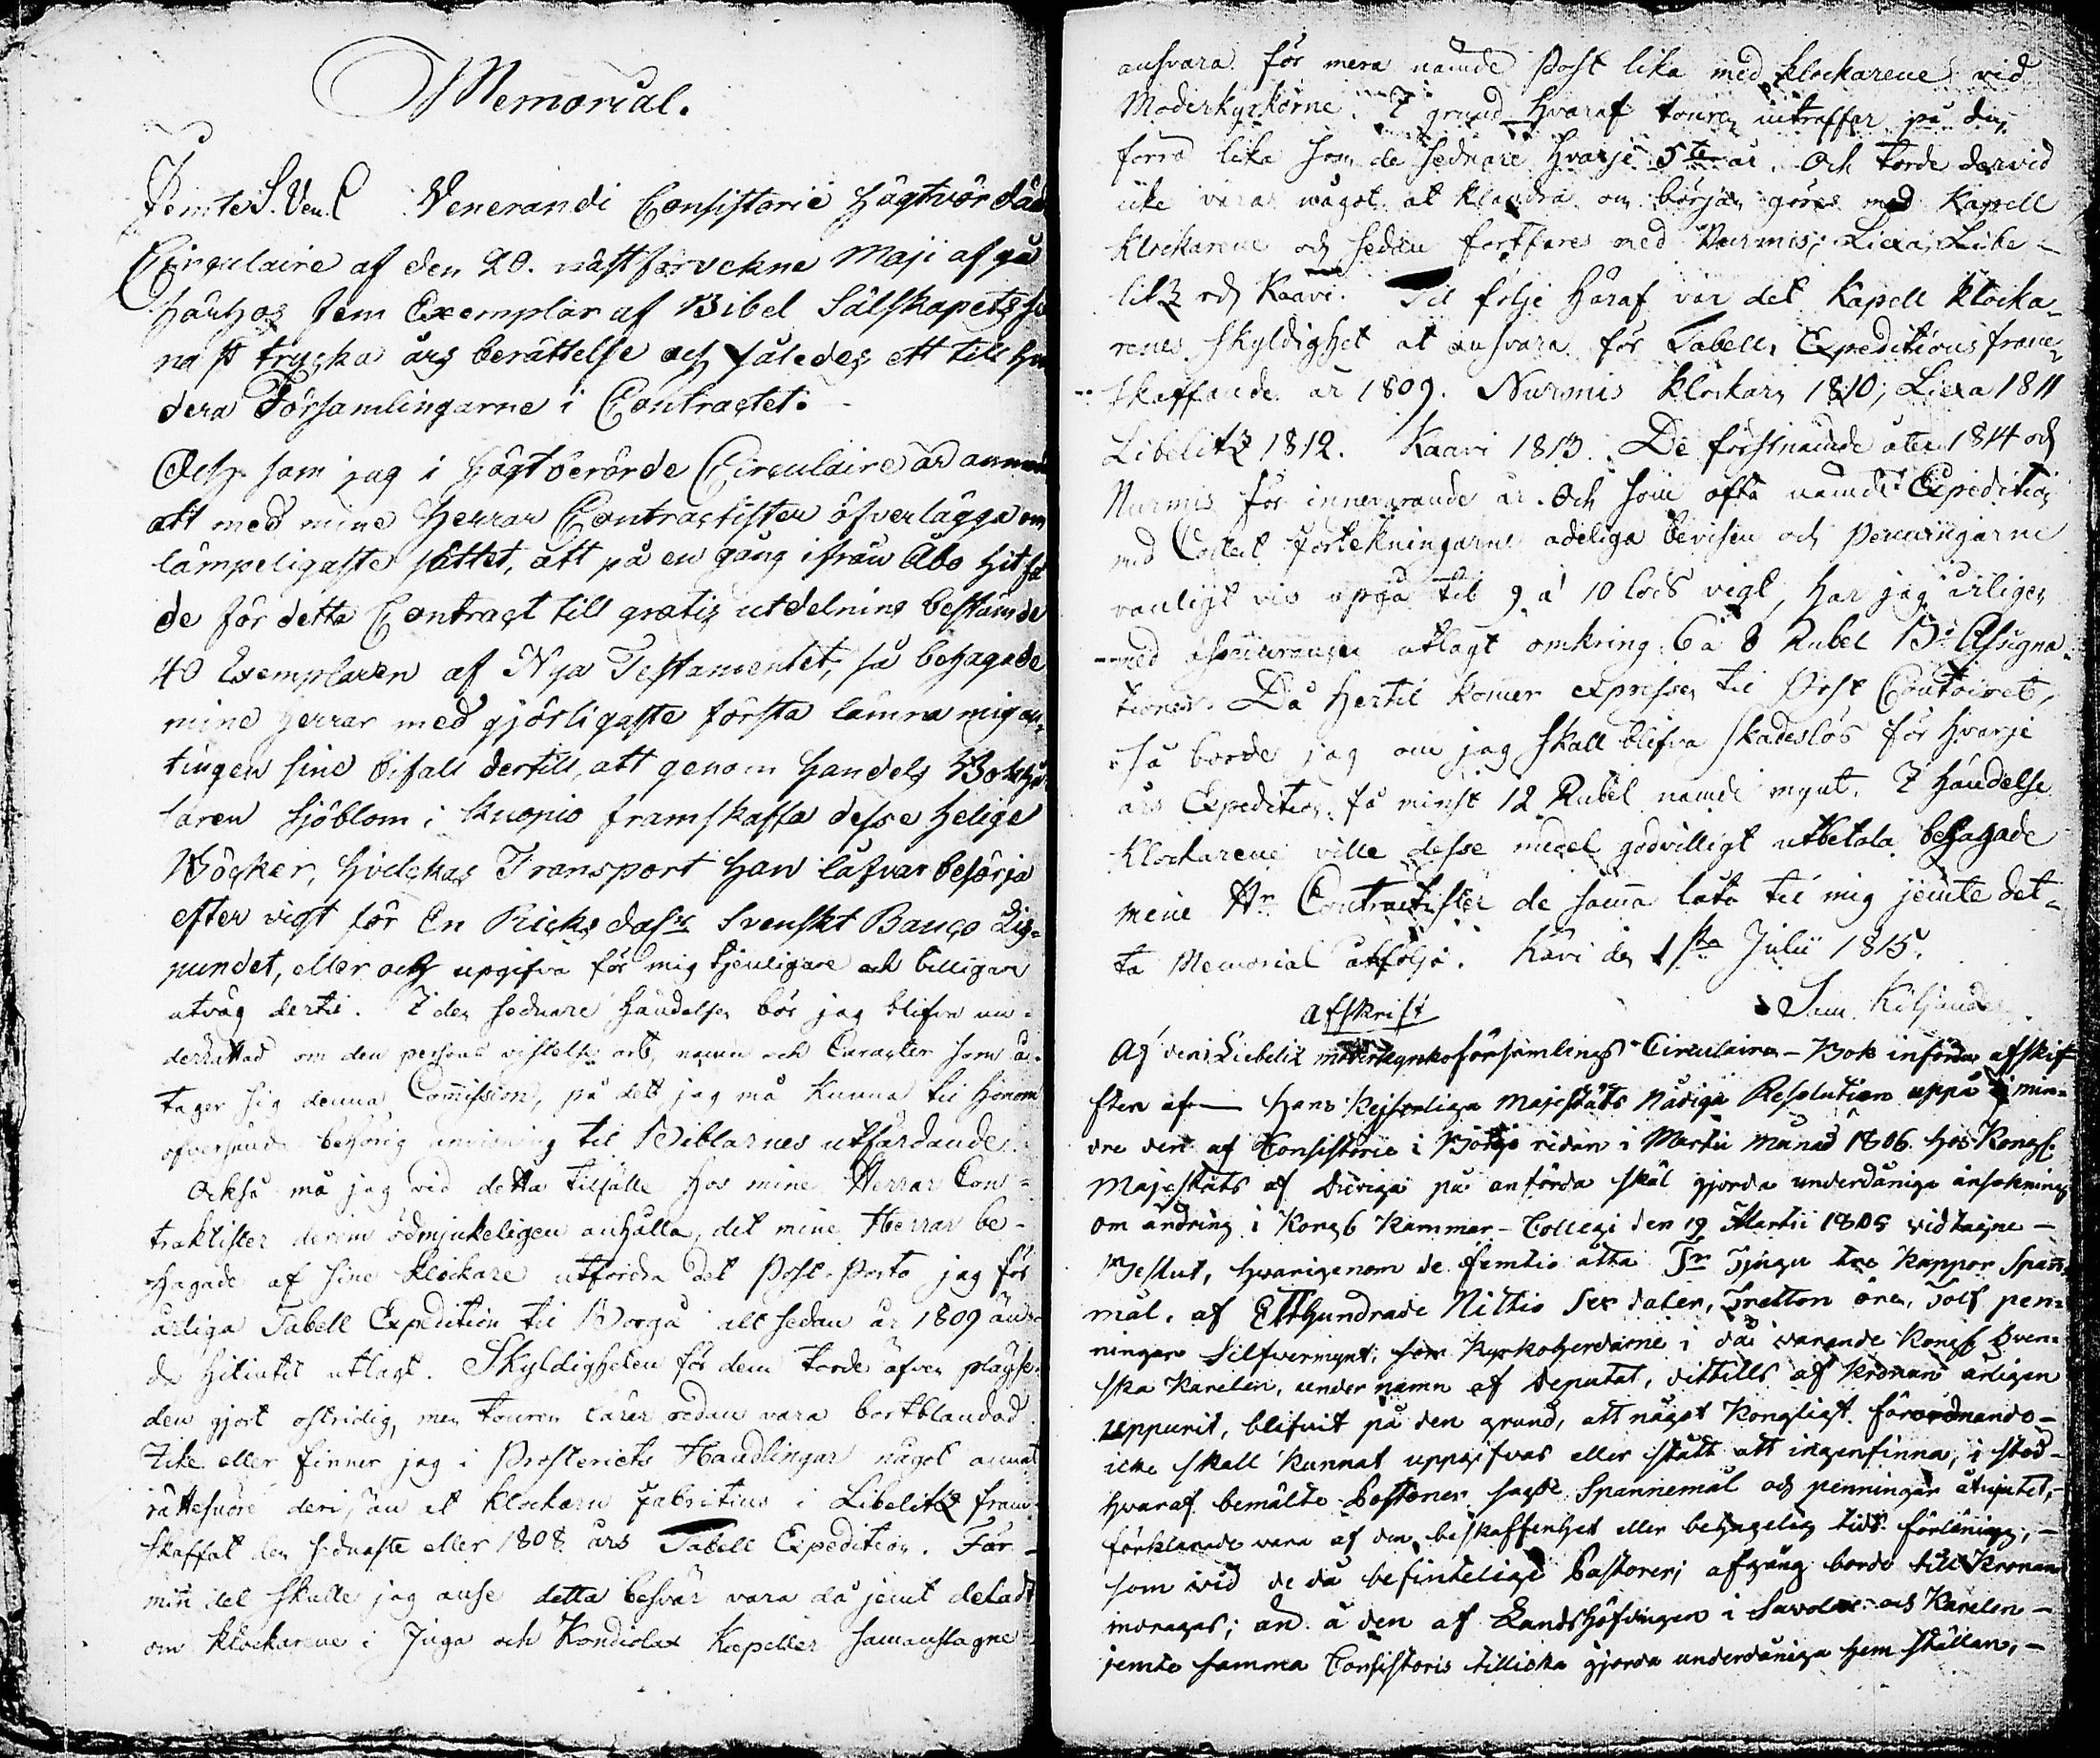 Memorial.
Jemte S. Ven. C Venerandi Consistorii högtvörda
Circulaire af den 20. nästförvekne Maji afgå
härhos fem Exemplar af Bibel Sälskapets
na st trycka års berättelse och således ett till
dera Församlingarne i Contractet.
Och som jag i högtberörde Circulaire är
att med mine Herrar Contractister öfverlägga om
lämpeligaste sättet, att på en gång ifrån Åbo hit få
de för detta Contract till gratis utdelning bestämde
40 Exemplaren af Nya Testamentet, så behagade
mine Herrar med gjörligaste första lämna mig an¬
tingen sine bifall dertill, att genom Handels Bokhål
laren Sjöblom i Kuopio framskaffa desse Helige
Böcker, hvilckas Transport han låfvar besörja
efter vigt för En Ricksdalr Svenskt Banco Lis¬
pundet, eller och upgifva för mig tjenligare och billigare
utväg dertil. I den sednare händelsen bör jag blifva un¬
derrättad om den persons vistelse ort, namn och Caracter som å¬
tager sig denna Commission, på det jag må kunna til honom
öfversända behörig anvisning til Biblarnes utfärdande.
Också må jag vid detta tilfälle hos mine Herrar Con¬
traktister derom ödmjukeligen anhålla, det mine Herrar be¬
hagade af sine klockare utfordra det Post-Porto jag för
årliga Tabell Expedition til Borgå alt sedan år 1809 än¬
da hitintil utlagt. Skyldigheten för dem torde äfven
den gjort ostridig, men touren lärer redan vara bortblandad.
Icke eller finner jag i Prosteriets Handlingar något annat
rättesnöre deri, än at klockarn Fabritius i Libelitz fram¬
skaffat den sednaste eller 1808 års Tabell Expedition. För
min del skulle jag anse detta besvär vara då jemt deladt
om klockarene i Juga och Kondiolax Kapeller sammanstagne
ansvara för mera nämde Post lika med klockarene vid
Moderkyrkorne. I grund hvaraf touren inträffar på den
förra lika som de sednare hvarje 5te år. Och torde dervid
icke vara något at klandra om början göres med Kapell
klockarene och sedan fortfares med Nurmis, Liexa, Libe¬
litz och Kaavi. Til följe häraf var det Kapell klocka¬
renes skyldighet at ansvara för Tabell Expeditions fram¬
skaffande år 1809. Nurmis klockarn 1810, Liexa 1811
Libelitz 1812. Kaavi 1813. De förstnämde åter 1814 och
Nurmis för innevarande år. Och som ofta nämde Expedition
med Collect förtekningarne adeliga bevisen och Penningarne
vanligt vis upgå til 9 a 10 lods vigt, har jag årligen
med assurancen utlagt omkring 6 à 8 Rubel Bo Assigna¬
tioner. Då hertil komer expressen til Post Contoiret,
så borde jag om jag skall blifva skadeslös för hvarje
års Expedition få minst 12 Rubel nämde mynt. I händelse
klockarene ville desse medel godvilligt utbetala behagade
mine Hrr Contractister de samma låta til mig jemte det¬
ta Memorial åtfölja. Kavi den 1sta Julii 1815.
Sam. Kiljander.
Afskrift
Af den i Liebelix moderkyrkoförsamlings Circulaire-Bok införda afskrif
ften af Hans Kejserliga Majestäts Nådiga Resolution uppå
dre den af Consistorie i Borgå redan i Martii månad 1806 hos Kongl.
Majestäts af Sverige på anförda skäl gjorda underdåniga ansökning
om ändring i Kongl Kammar-Collegi den 19 Martii 1805 vidtagne
Beslut, hwarigenom de femtio åtta Tr tjugu tre Kappor Spann¬
mål, af Etthundrade Nittio Sex daler, Tretton öre, Tolf pen¬
ningar Silfvermynt, som Kyrkoherdarne i då warande Kongl Sven¬
ska Karelen, under namn af Deputat, dittills af Kronan årligen
uppurit, blifvit på den grund, att något Kongligt förordnande
icke skall kunnat uppgifvas eller stått att igenfinna, i stöd
hvaraf bemälte Pastorer sagde Spannemål och penningar åtnjutit,
förklarade vara af den beskaffenhet eller behagelig tids förläning,
som vid de då befintelige Pastorers afgång borde till Kronan
indragas; and. å den af Landshöfdingen i Savolax och Karelen
jemte samma Consistoris tillicka gjorda underdåniga hemställan,